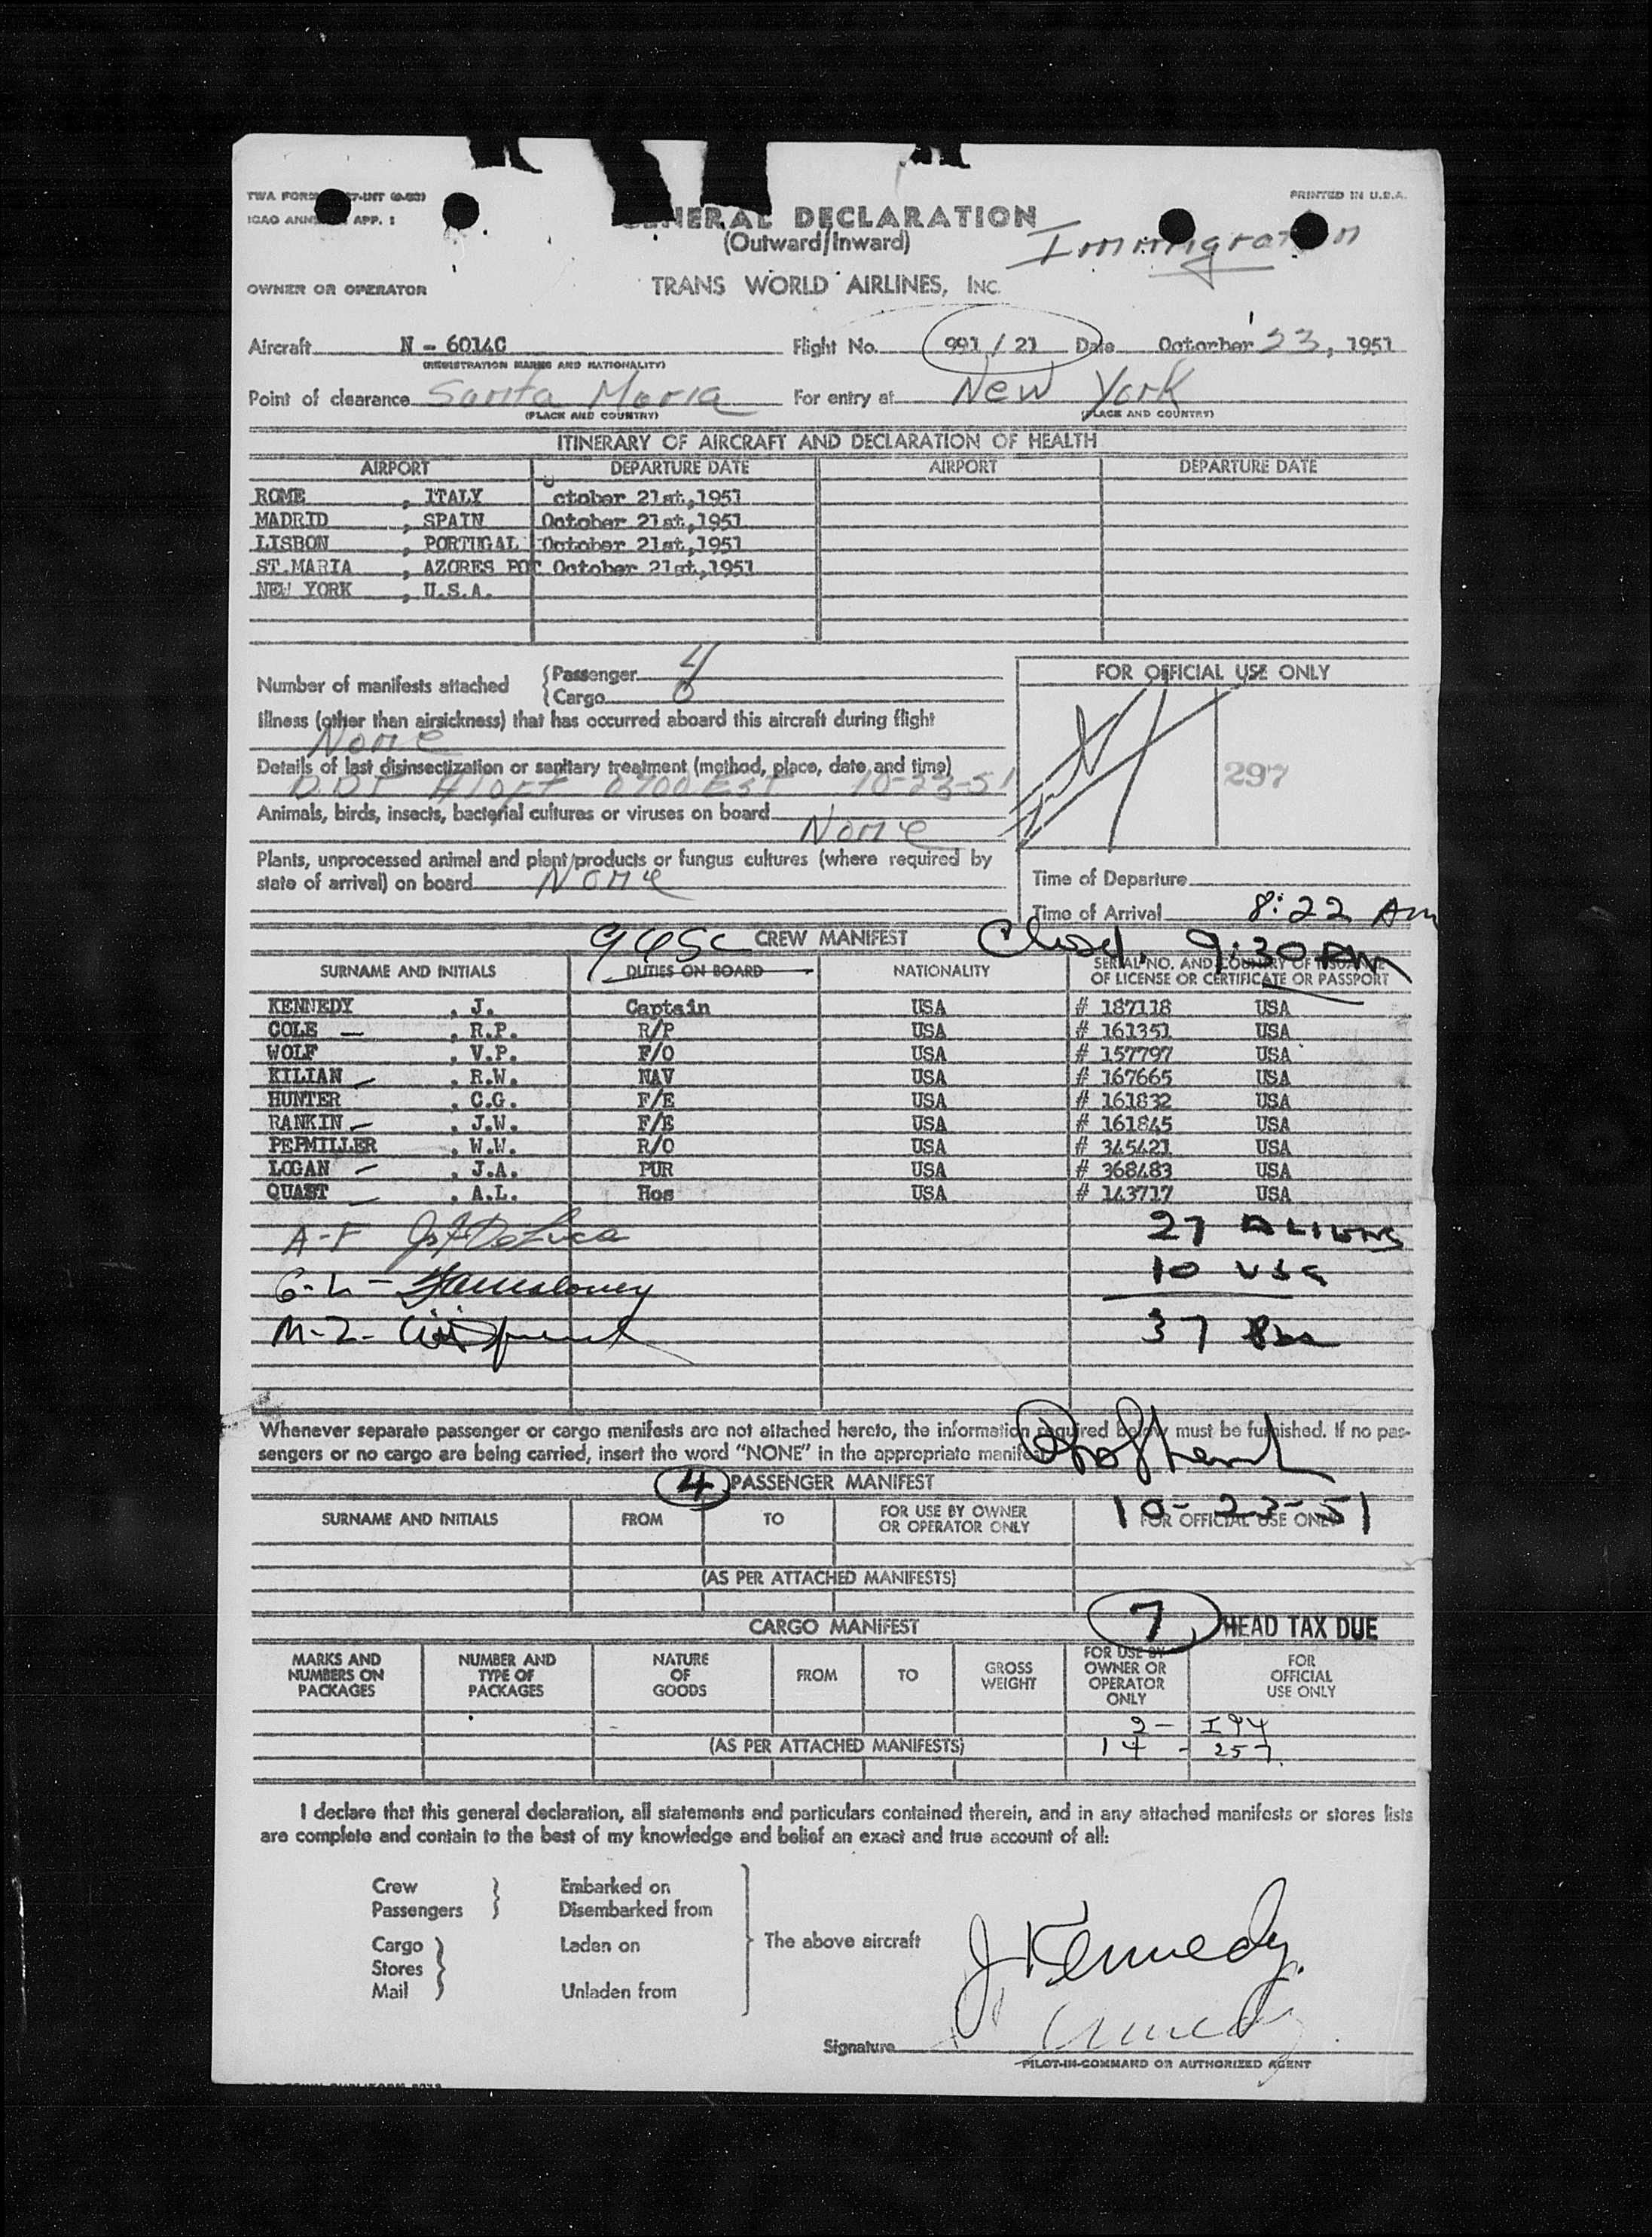 PRINTED IN U.S.A.
ICAO ANN APP. 1
ENERAL DECLARATION
(Outward/Inward)
Immigration
OWNER OR OPERATOR TRANS WORLD AIRLINES, INC.
Aircraft N - 6014C Flight No. 991 / 21 Date Octorber 23, 1951
(REGISTRATION MARKS AND NATIONALITY)
Point of clearance Santa Maria For entry at New York
(PLACE AND COUNTRY) (PLACE AND COUNTRY)
ITINERARY OF AIRCRAFT AND DECLARATION OF HEALTH
AIRPORT DEPARTURE DATE AIRPORT DEPARTURE DATE
ROME , ITALY October 21st,1951
MADRID , SPAIN October 21st,1951
LISBON , PORTUGAL October 21st,1951
ST.MARIA , AZORES POT October 21st,1951
NEW YORK , U.S.A.
Number of manifests attached Passenger 4
Cargo 0
FOR OFFICIAL USE ONLY
297
Illness (other than airsickness) that has occurred aboard this aircraft during flight
None
Details of last disinsectization or sanitary treatment (method, place, date and time)
DDT Aloft 0700 EST 10-23-51
Animals, birds, insects, bacterial cultures or viruses on board None
Plants, unprocessed animal and plant products or fungus cultures (where required by
state of arrival) on board None
Time of Departure
Time of Arrival 8:22 AM
CREW MANIFEST Closed. 9:30 AM
SURNAME AND INITIALS DUTIES ON BOARD NATIONALITY SERIAL NO. AND COUNTRY OF ISSUANCE
OF LICENSE OR CERTIFICATE OR PASSPORT
KENNEDY , J. Captain USA # 187118 USA
COLE , R.P. R/P USA # 161351 USA
WOLF , V.P. F/O USA # 157797 USA
KILIAN , R.W. NAV USA # 167665 USA
HUNTER , C.G. F/E USA # 161832 USA
RANKIN , J.W. F/E USA # 161845 USA
PEPMILLER , W.W. R/O USA # 345421 USA
LOGAN , J.A. PUR USA # 368483 USA
QUAST , A.L. Hos USA # 143717 USA
A-F DeLuca 27 ALIENS
G-L- 10 USC
M-Z- 37
Whenever separate passenger or cargo manifests are not attached hereto, the information required below must be furnished. If no pas-
sengers or no cargo are being carried, insert the word "NONE" in the appropriate
4 PASSENGER MANIFEST
10-23-51
SURNAME AND INITIALS FROM TO FOR USE BY OWNER
OR OPERATOR ONLY FOR OFFICIAL USE ONLY
(AS PER ATTACHED MANIFESTS)
CARGO MANIFEST 7 HEAD TAX DUE
MARKS AND
NUMBERS ON
PACKAGES
NUMBER AND
TYPE OF
PACKAGES
NATURE
OF
GOODS
FROM
TO
GROSS
WEIGHT
FOR USE BY
OWNER OR
OPERATOR
ONLY
FOR
OFFICIAL
USE ONLY
2 - I94
(AS PER ATTACHED MANIFESTS) 14 - 257
I declare that this general declaration, all statements and particulars contained therein, and in any attached manifests or stores lists
are complete and contain to the best of my knowledge and belief an exact and true account of all:
Crew Embarked on
Passengers Disembarked from
Cargo Laden on The above aircraft
Stores
Mail Unladen from
J. Kennedy.
Signature
PILOT-IN-COMMAND OR AUTHORIZED AGENT